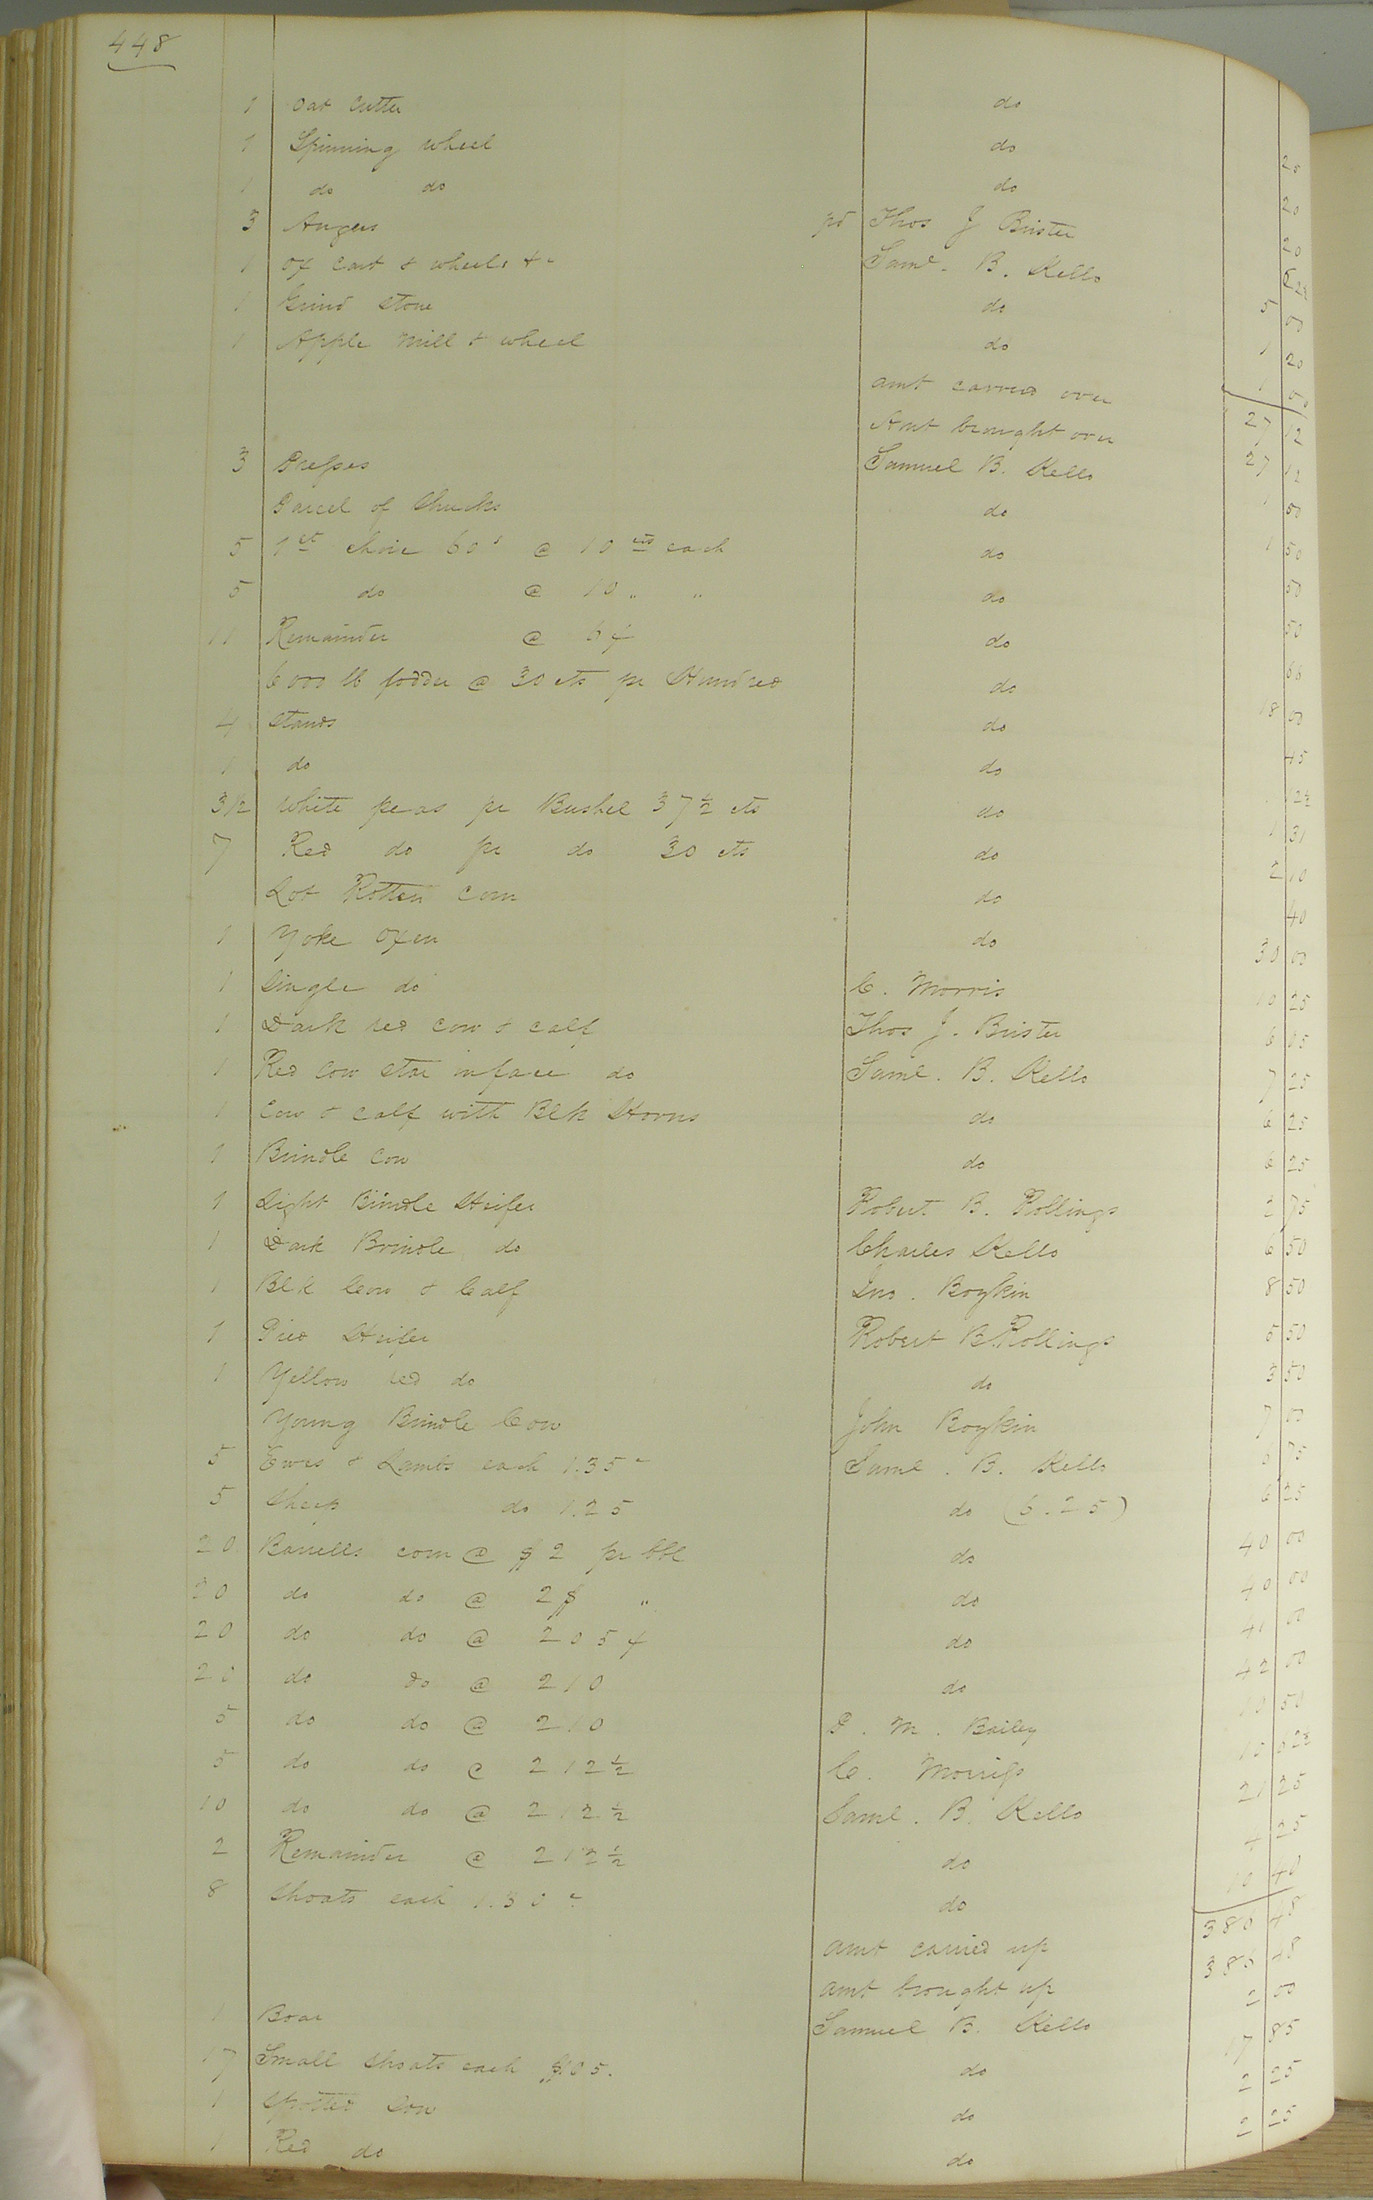 448
1 Oat Cutter do 20
1 Spinning wheel do 20
1 do do do 20
3 Augers pd Thos J Brister 62½
1 Ox Cart & wheels &c Saml. B. Kello 5 00
1 Grind Stone do 1 20
1 Apple Mill & wheel do 1 00
amt carried over 27 12
Amt brought over 27 12
3 Presses Samuel B. Kello 1 00
Parcel of Shucks do 1 50
5 1st choice 60s @ 10 cts each do 50
5 do @ 10 " " do 50
11 Remainder @ 6 ¢ do 66
6000 lb fodder @ 30 cts pr Hundred do 18 00
4 Stands do 45
1 do do 12½
3½ White peas pr Bushel 37½ cts do 1 31
7 Red do pr do 30 cts do 2 10
Lot Rotten corn do 40
1 Yoke Oxen do 30 00
1 Single do C. Morris 10 25
1 Dark red cow & calf Thos J. Brister 6 05
1 Red Cow star in face do Saml. B. Kello 7 25
1 Cow & calf with Blk Horns do 6 25
1 Brindle Cow do 6 25
1 Light Brindle Heifer Robert B. Rollings 2 75
1 Dark Brindle do Charles Kello 6 50
1 Blk Cow & Calf Jno. Boykin 8 50
1 Pied Heifer Robert B. Rollings 5 50
1 Yellow red do do 3 50
Young Brindle Cow John Boykin 7 00
5 Ewes & Lambs each 1.35 c Saml. B. Kello 6 75
5 Sheep do 1.25 do (6.25) 6 25
20 Barrells corn @ $2 pr bbl do 40 00
20 do do @ 2$ " do 40 00
20 do do @ 205 ¢ do 41 00
20 do do @ 210 do 42 00
5 do do @ 210 P. M. Bailey 10 50
5 do do @ 212½ C. Morriss 10 62½
10 do do @ 212½ Saml. B. Kello 21 25
2 Remainder @ 212½ do 4 25
8 Shoats each 1.30 c do 10 40
amt carried up 386 48
amt brought up 386 48
1 Boar Samuel B. Kello 2 00
17 Small Shoats each $105. do 17 85
1 Spotted Sow do 2 25
1 Red do do 2 25